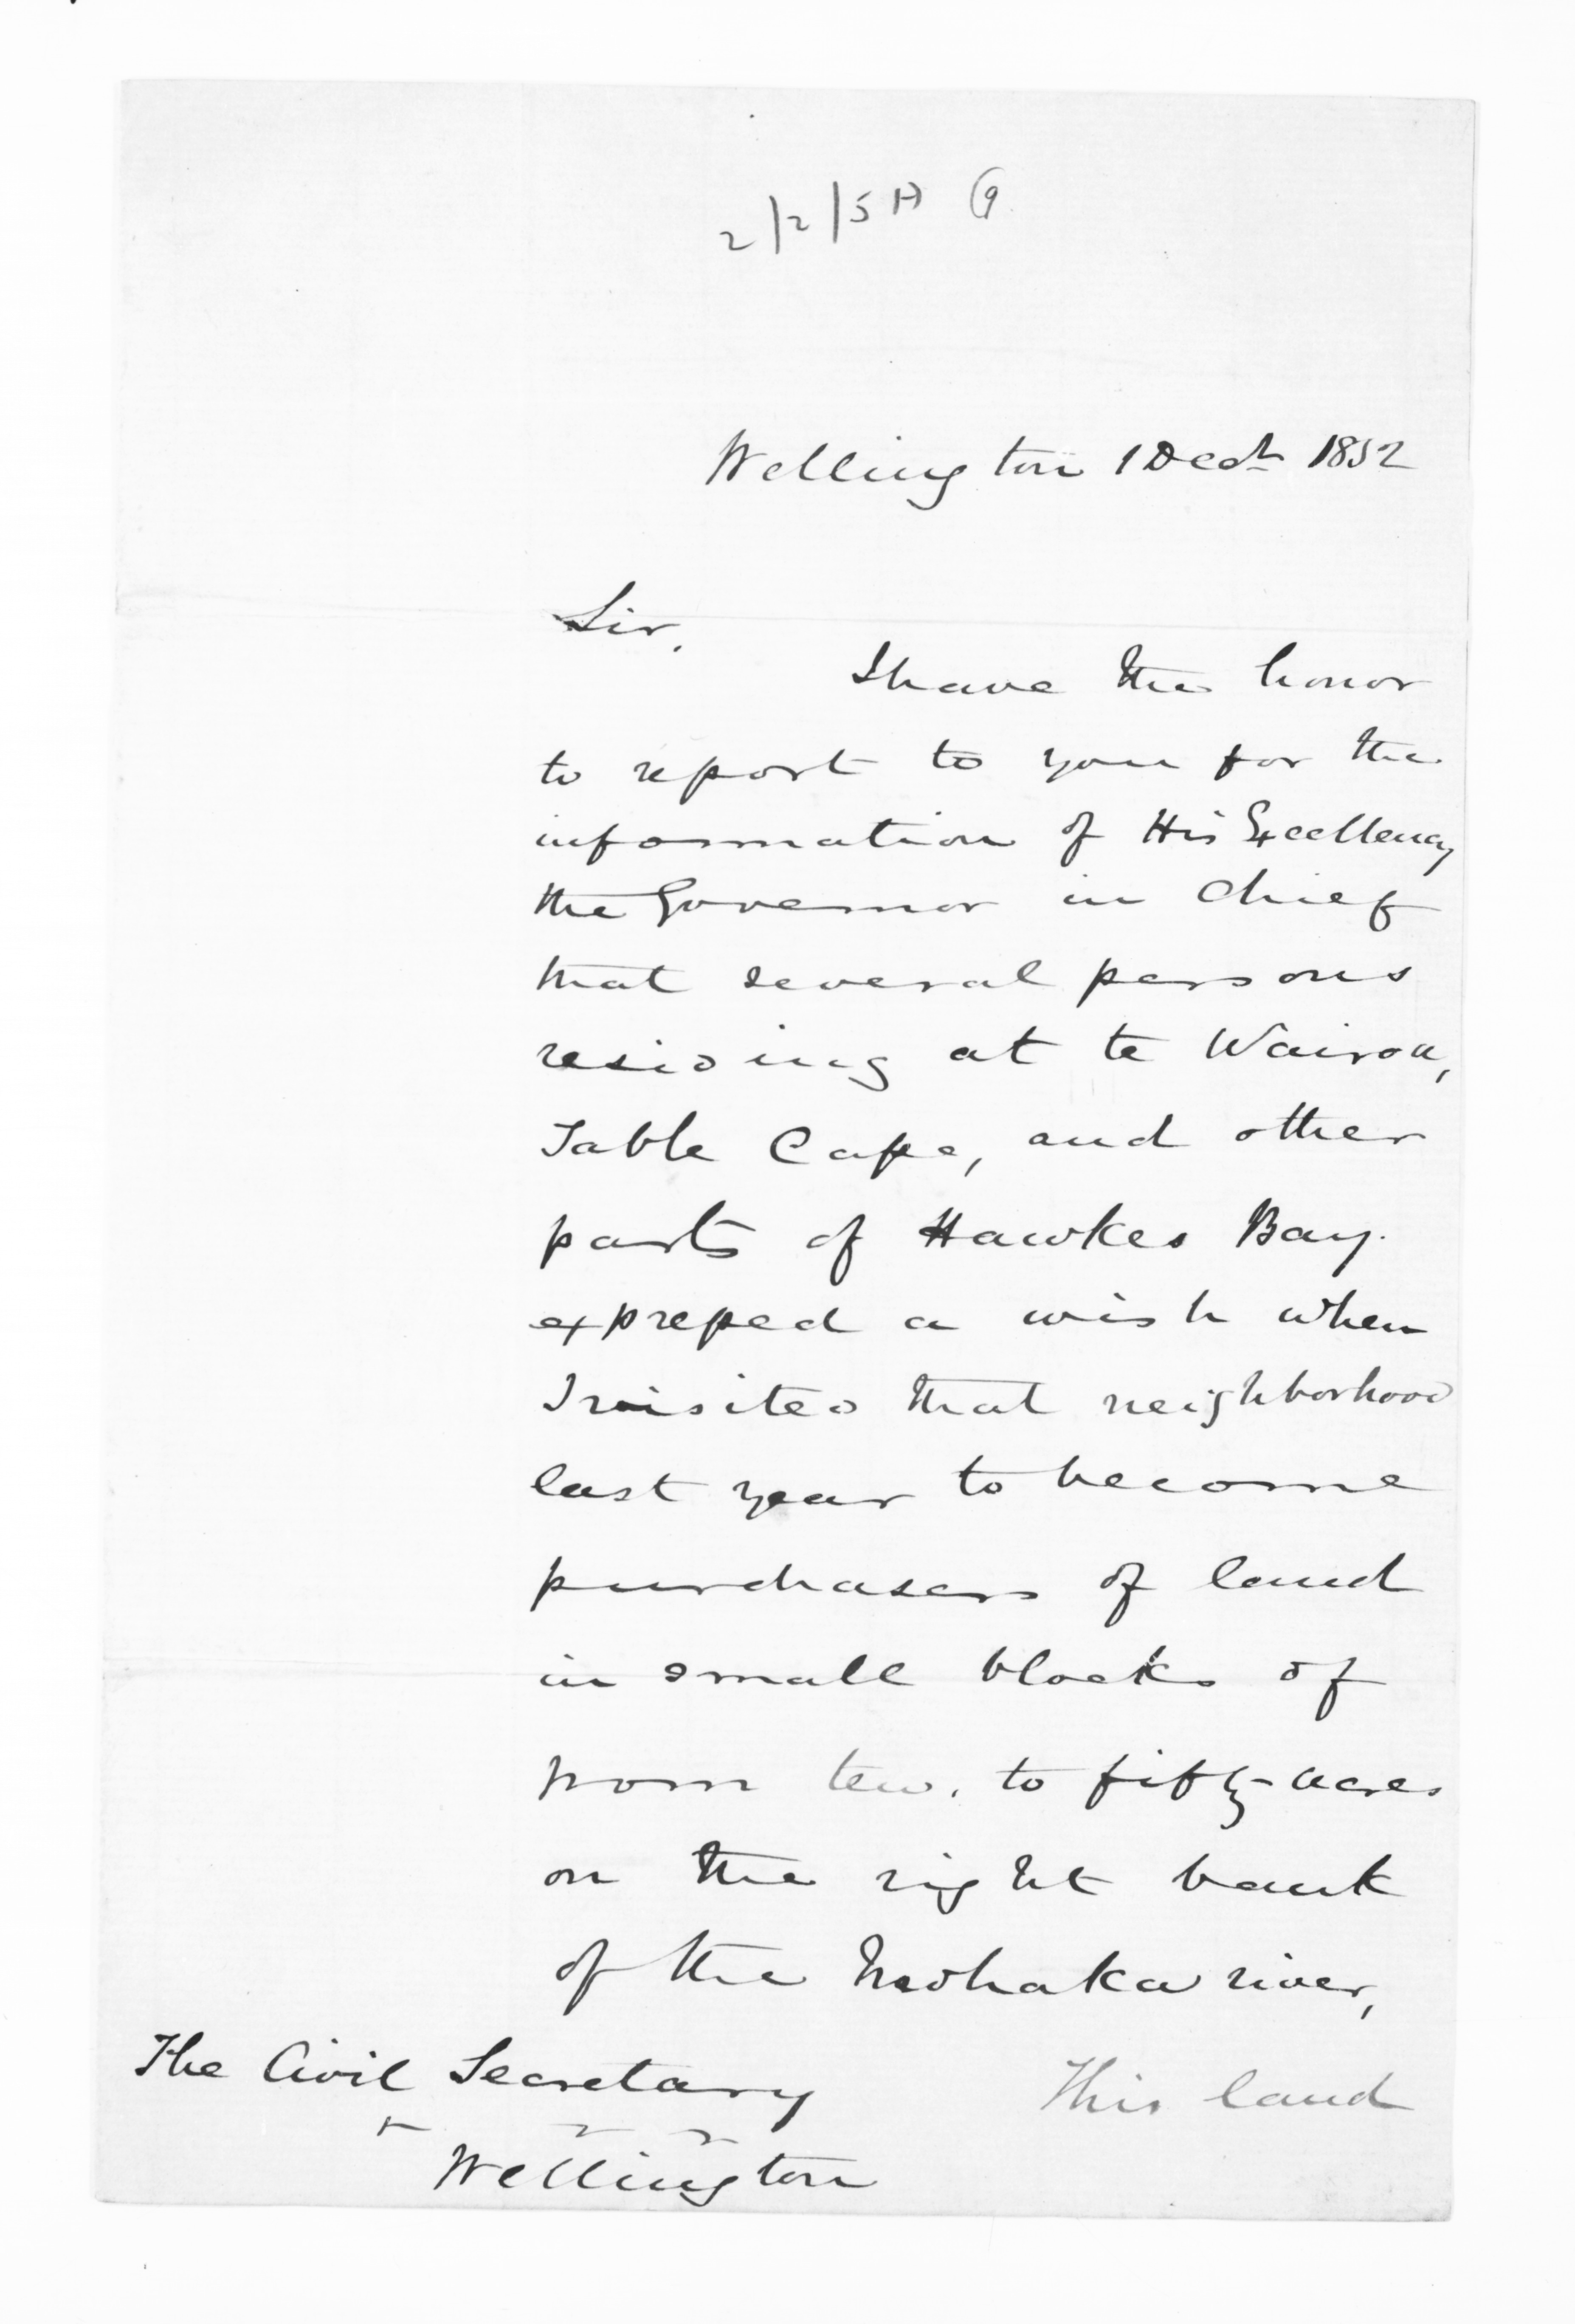 2/2/5 A G
Wellington 1 Decr 1852
Sir,
I have the honor
to report to you for the
information of His Excellency
the Governor in Chief
that several persons
residing at te Wairoa,
Table Cape, and other
parts of Hawkes Bay.
expressed a wish when
I visited that neighborhood
last year to become
purchasers of land
in small blocks of
from ten, to fifty acres
on the right bank
of the Mohaka river,
This land
The Civil Secretary
Wellington